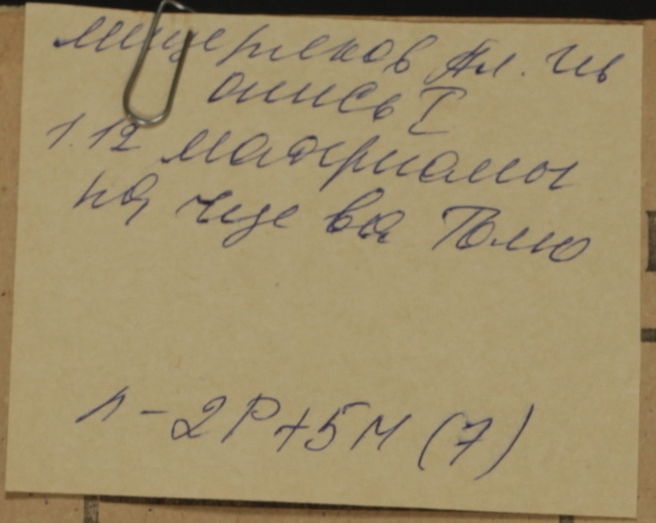 Мещеряков Ал. Ив
опись I
1.12 материалы
на чце ва Толю
л - 2Р+5М (7)